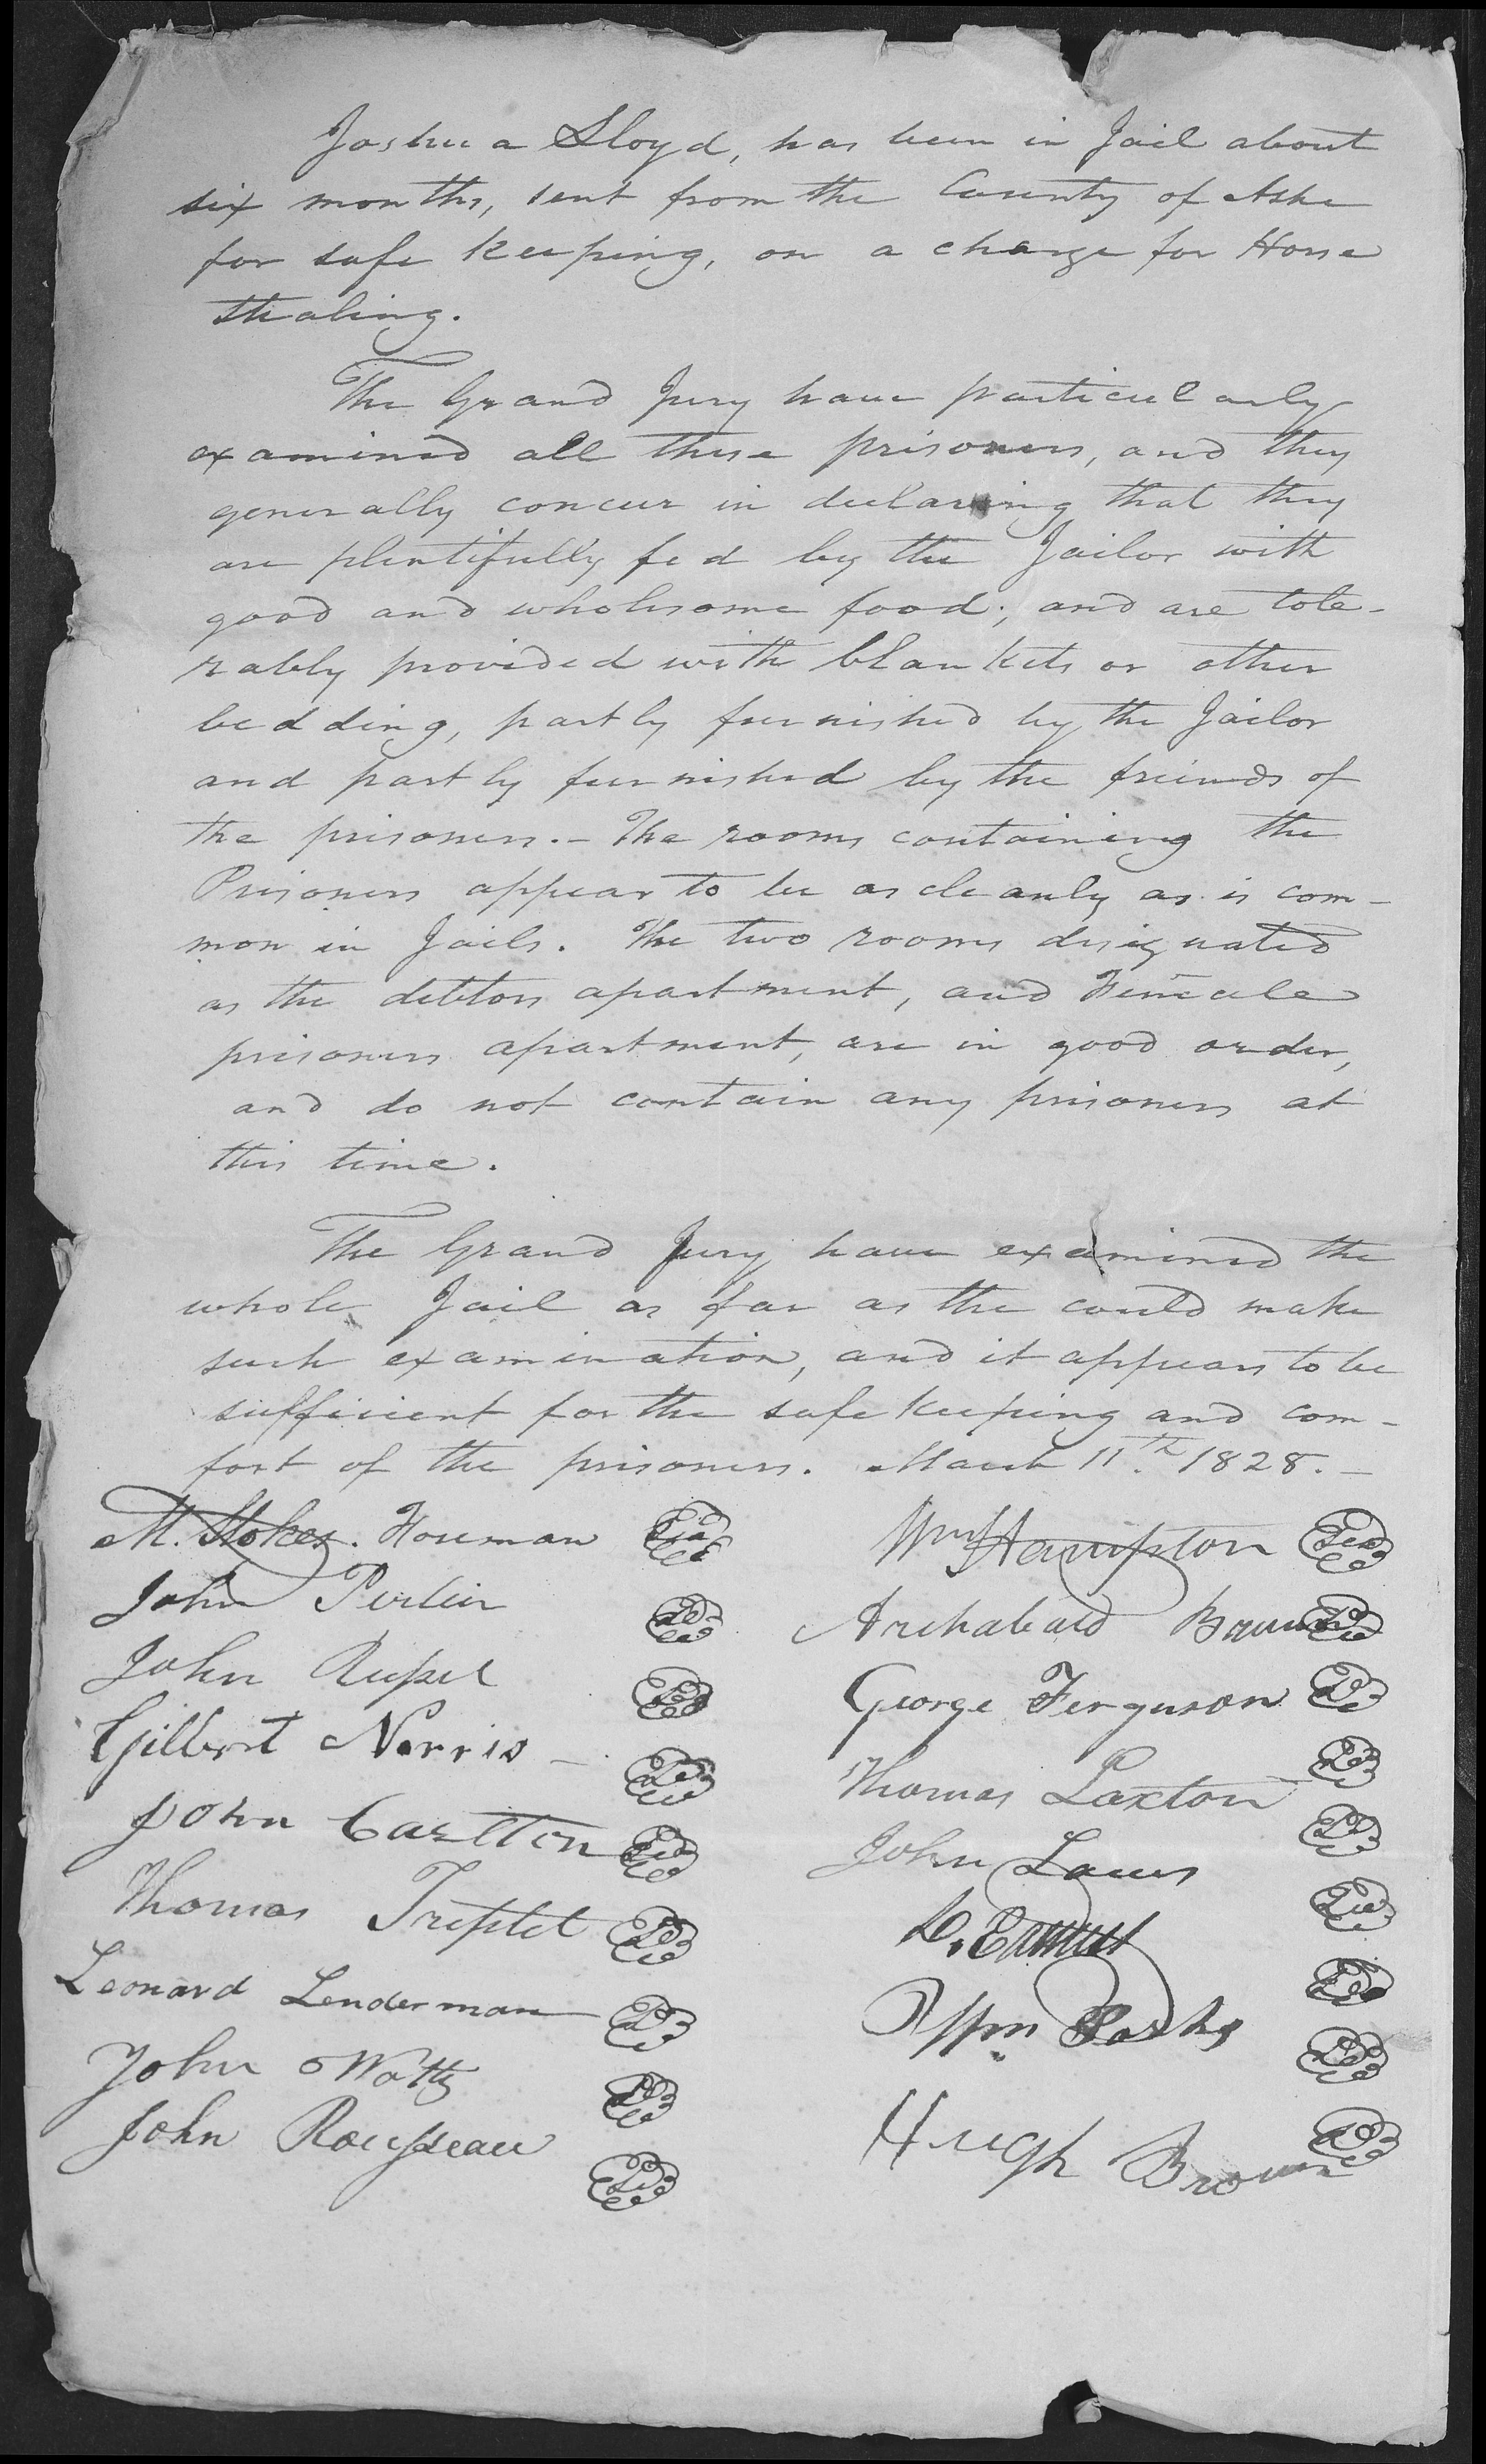 Joshua Sloyd, has been in Jail about
six months, sent from the County of Ashe
for safe keeping, on a charge for Horse
stealing.
The Grand Jury have particularly
examined all these prisoners, and they
generally concur in declaring that they
are plentifully fed by the Jailor with
good and wholesome food; and are tole-
rably provided with blankets or other
bedding, partly furnished by the Jailor
and partly furnished by the friends of
the prisoners.- The rooms containing the
Prisoners appear to be as cleanly as is com-
mon in Jails. The two rooms designated
as the debtors apartment, and Female
prisoners apartment, are in good order,
and do not contain any prisoners at
this time.
The Grand Jury have examined the
whole Jail as far as the could make
such examination, and it appears to be
sufficient for the safe keeping and com-
fort of the prisoners. March 11th. 1828.-
M. Stokes. Foreman Seal
John
John
Gilbert Norris -
John Carlton
Thomas Triplet
Leonard Lenderman
John Watts
John Rousseau
Wm Hampton Seal
Archabald Brown
George Ferguson
Thomas Laxton
John Laws
Wm Parks
Hugh Brown